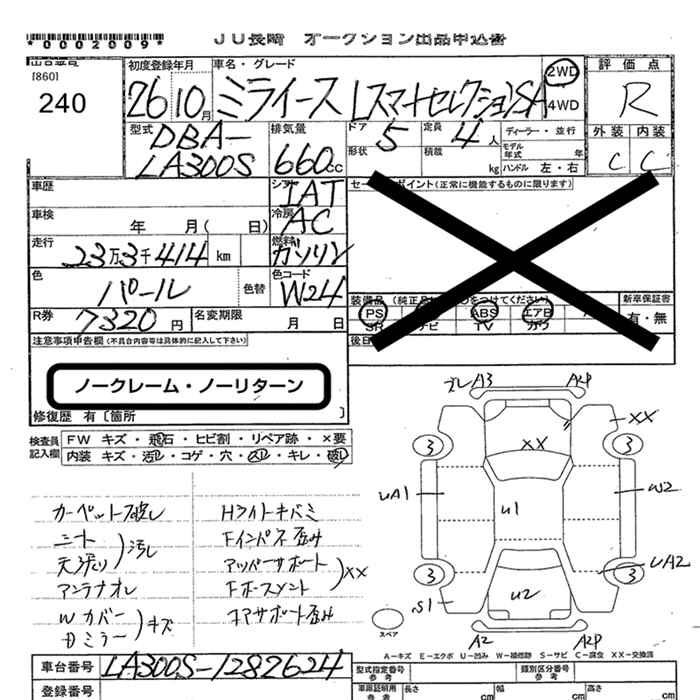 *0002009*
JU長崎 オークション出品申込書
出品番号
[860]
240
初度登録年月
26 10月
車名・グレード
ミライース LスマートセレクションSA
2WD
4WD
評価点
R
外装 内装
C C
型式
DBA-
LA300S
排気量
660cc
ドア
5
形状
定員
4人
積載
kg
ディーラー・並行
モデル年式 年
ハンドル 左・右
車歴
シフト
IAT
車検 年 月( 日)
冷房
AC
走行
23万3千414 km
燃料
ガソリン
色
パール
色替
色コード
W24
R券
7320円
名変期限 月 日
セールスポイント(正常に機能するものに限ります)
PS ABS エアB
SR ナビ TV カワ
新車保証書
有・無
注意事項申告欄(不具合内容等は具体的に記入して下さい)
ノークレーム・ノーリターン
修復歴 有〔箇所 〕
検査員記入欄
FW キズ・飛石・ヒビ割・リペア跡・×要
内装 キズ・汚レ・コゲ・穴・スレ・キレ・破レ
カーペット破レ
ニート
天張り
汚レ
アンテナオレ
Wカバー
Dミラー
キズ
Hライトキバミ
Fインパネ歪み
アッパーサポート
Fホースメント
XX
コアサポート歪み
A3 A2P
XX
3 3
XX
UA1 U1 W2
3 3
UA2
S1 U2
スペア
A2 A2P
A-キズ E-エクボ U-凹み W-補修跡 S-サビ C-腐食 XX-交換済
車台番号
LA300S-1282624
登録番号
型式指定番号
参考
類別区分番号
参考
車庫証明用
参考
長さ cm
幅 cm
高さ cm